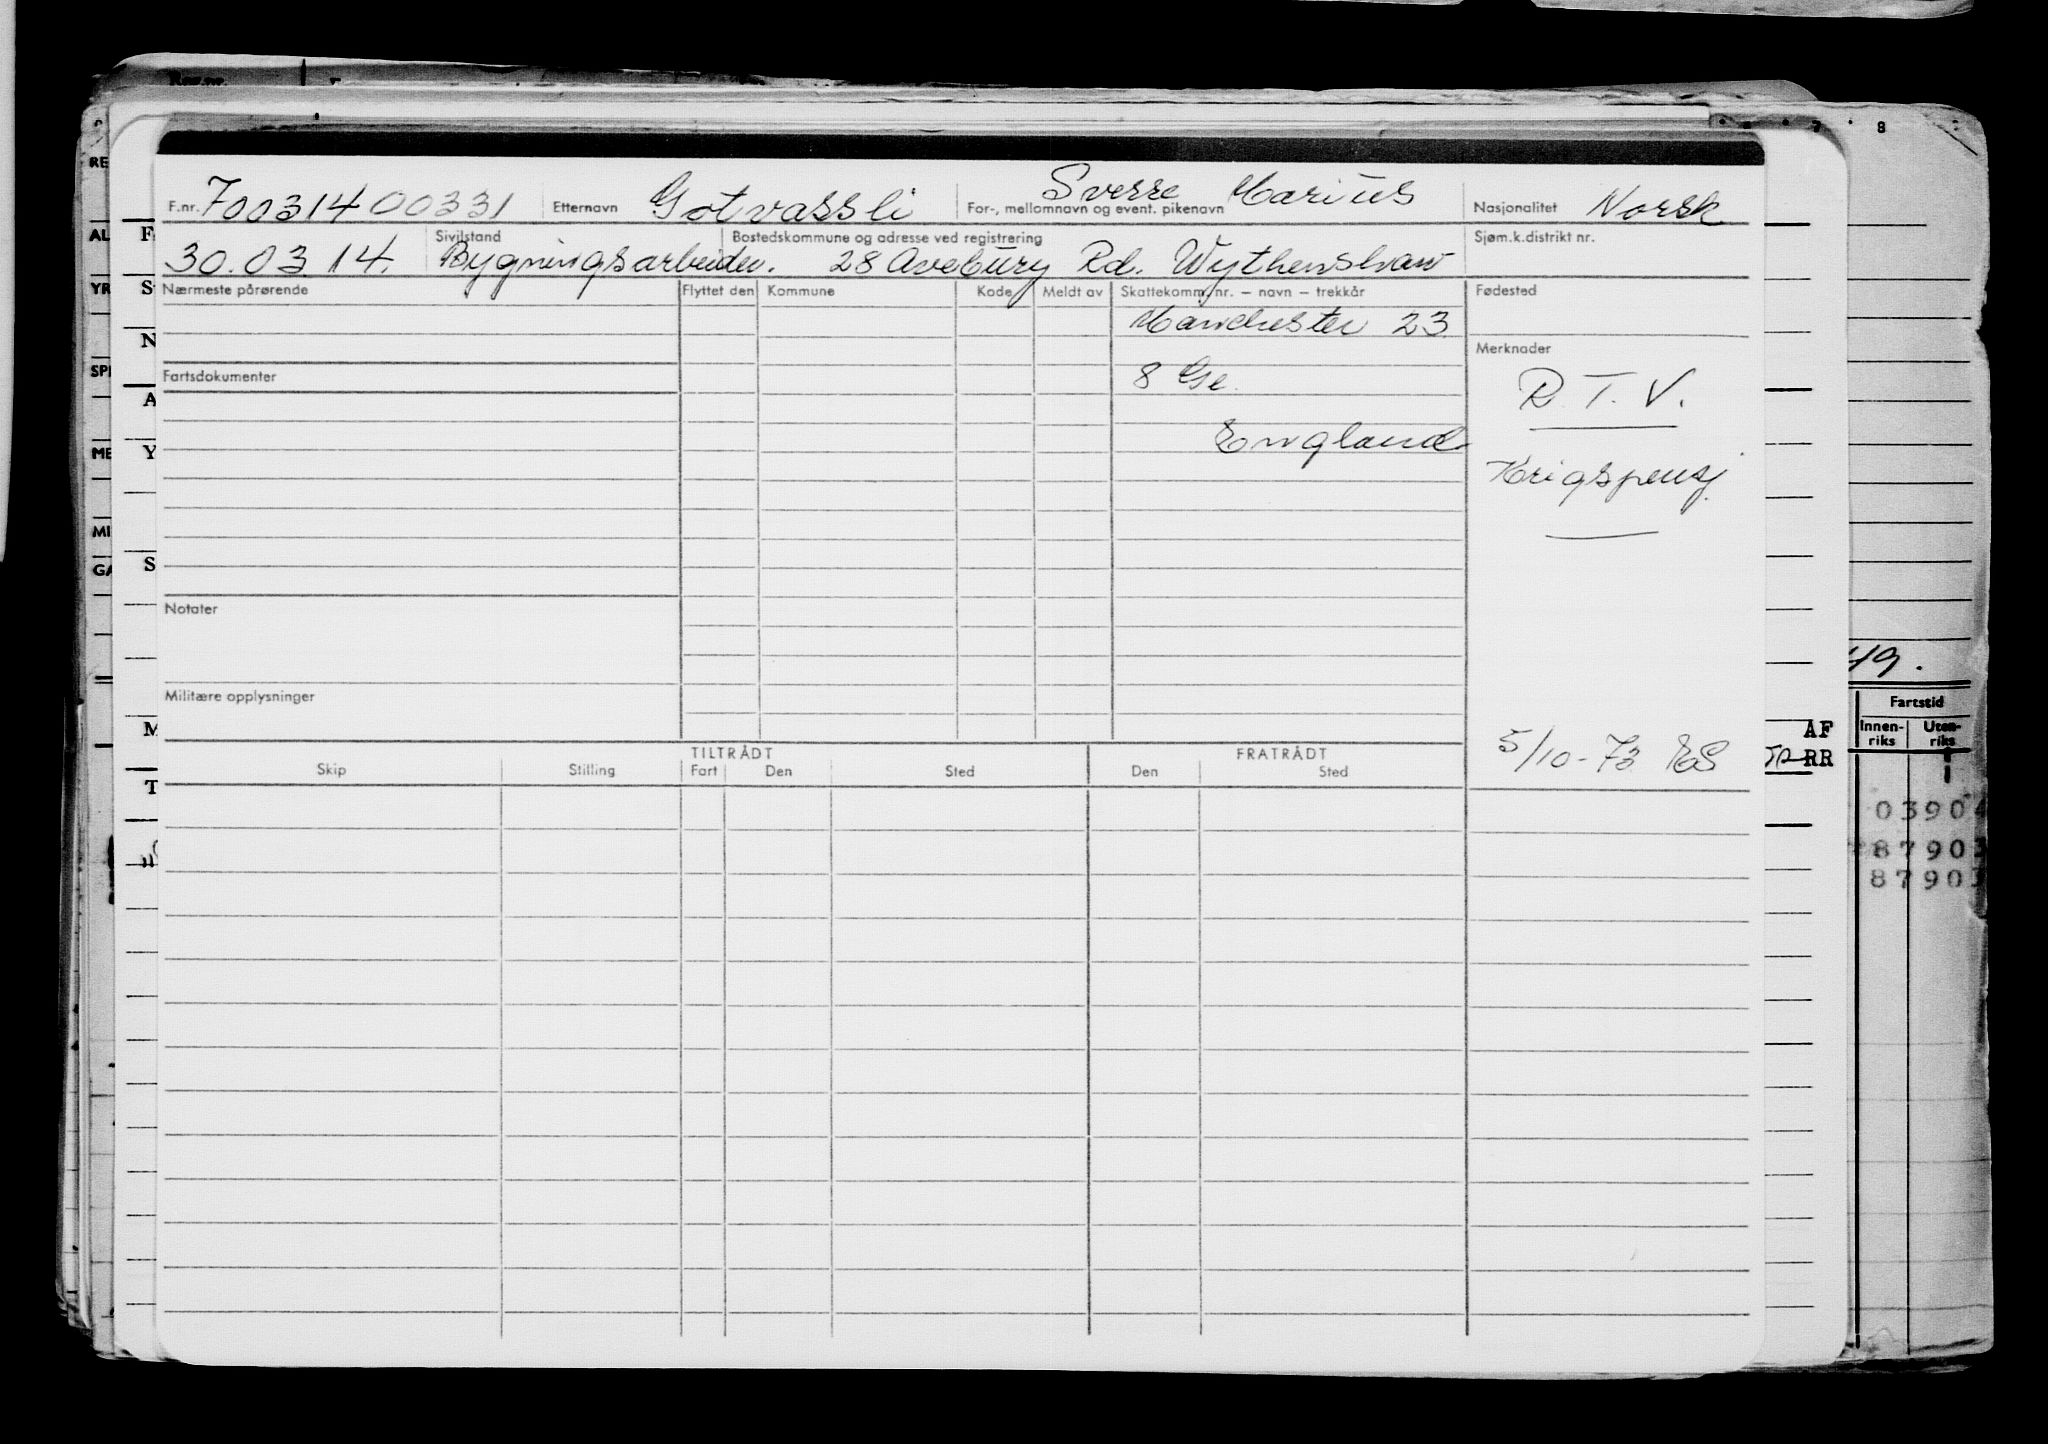 Reg.nr.
7 8
F.nr. 70031400331 Etternavn Gotvassli For-, mellomnavn og event. pikenavn Sverre Marius Nasjonalitet Norsk
30.03 14. Sivilstand Bygningsarbeider. Bostedskommune og adresse ved registrering 28 Avebury Rd. Wythenshaw Sjøm.k.distrikt nr.
Nærmeste pårørende Flyttet den Kommune Kode Meldt av Skattekomm. nr. — navn — trekkår Fødested
Manchester 23
Merknader
Fartsdokumenter 8 Ge. R.T.V.
England
Krigspensj.
Notater
49.
Militære opplysninger
Fartstid
Innen-riks Uten-riks
AF
RR
5/10-73 ES
TILTRÅDT FRATRÅDT
Skip Stilling Fart Den Sted Den Sted
03904
87903
8790
RE
AL
YR
SPE
ME
MI
GA
F
S
N
A
Y
S
M
T